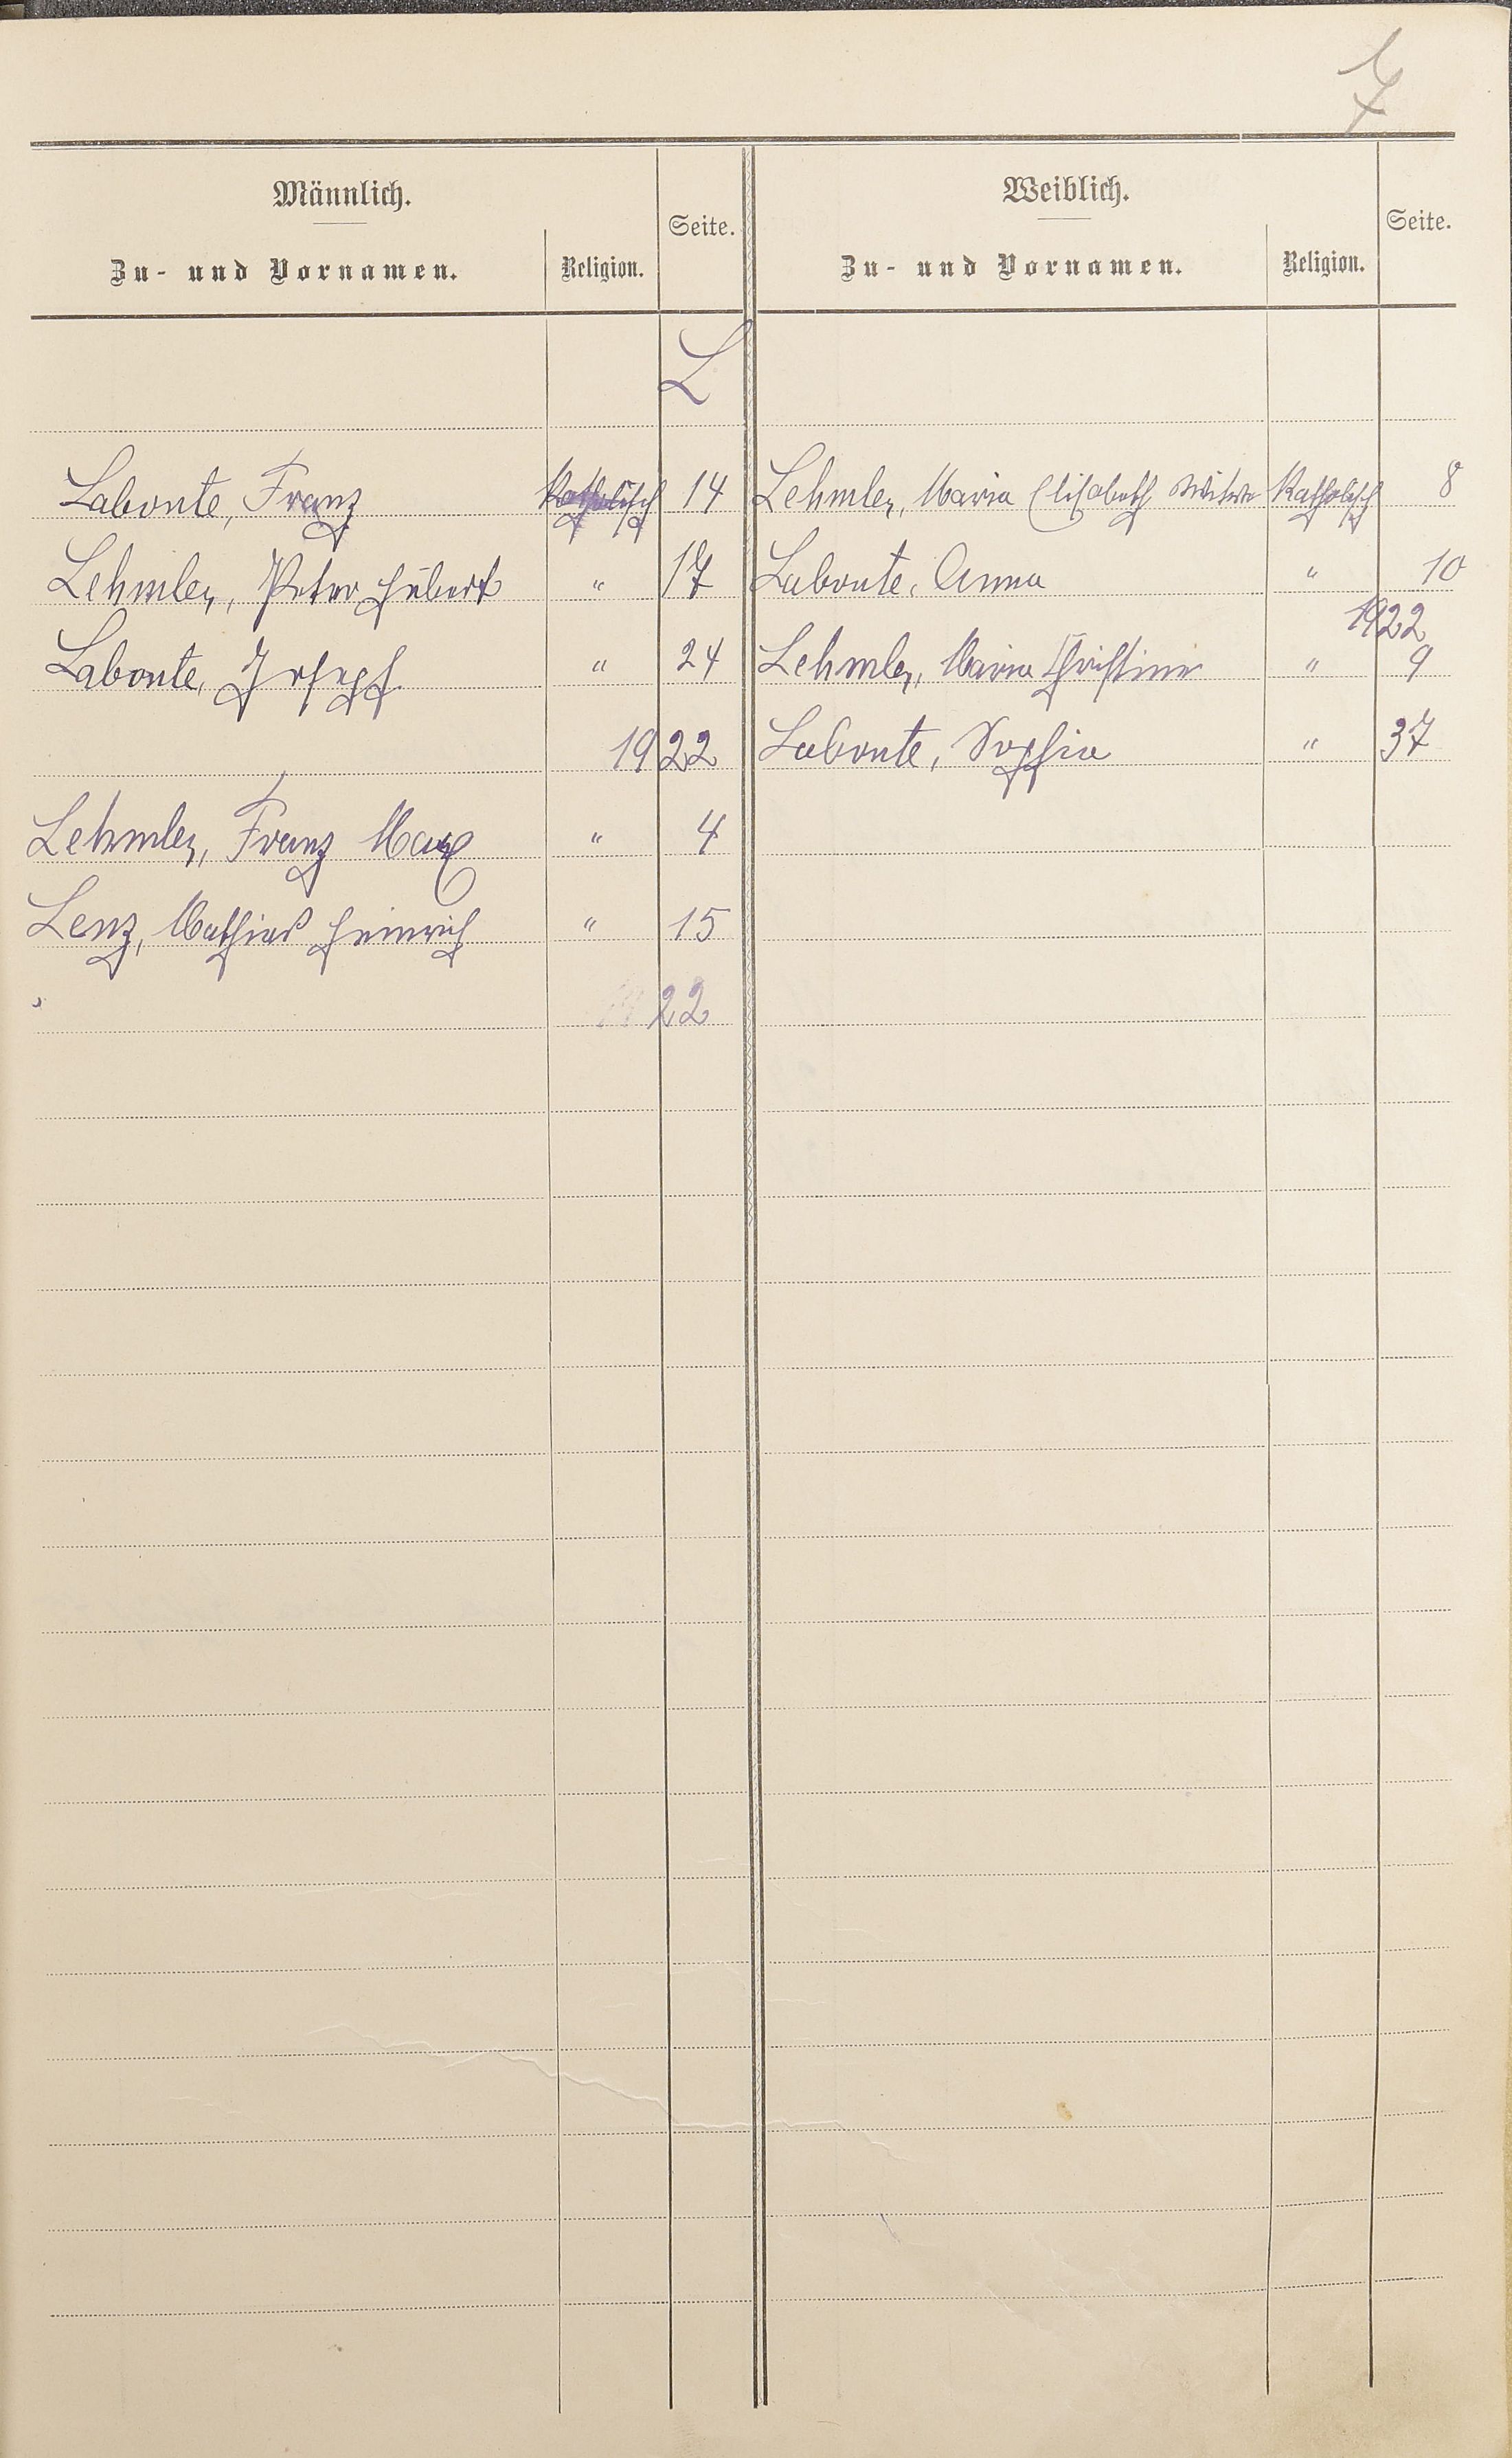 7
Männlich.
Zu- und Vornamen.
Religion.
Seite.
Weiblich.
Zu- und Vornamen.
Religion.
Seite.
L
Labonte, Franz Katholisch 14
Lehmler, Peter Hubert " 17
Labonte, Joseph " 24
1922
Lehmler, Franz Max " 4
Lenz, Mathias Heinrich " 15
1922
Lehmler, Maria Elisabeth Witwe Katholisch 8
Labonte, Anna " 10
1922
Lehmler, Maria Christine " 9
Labonte, Sophia " 37